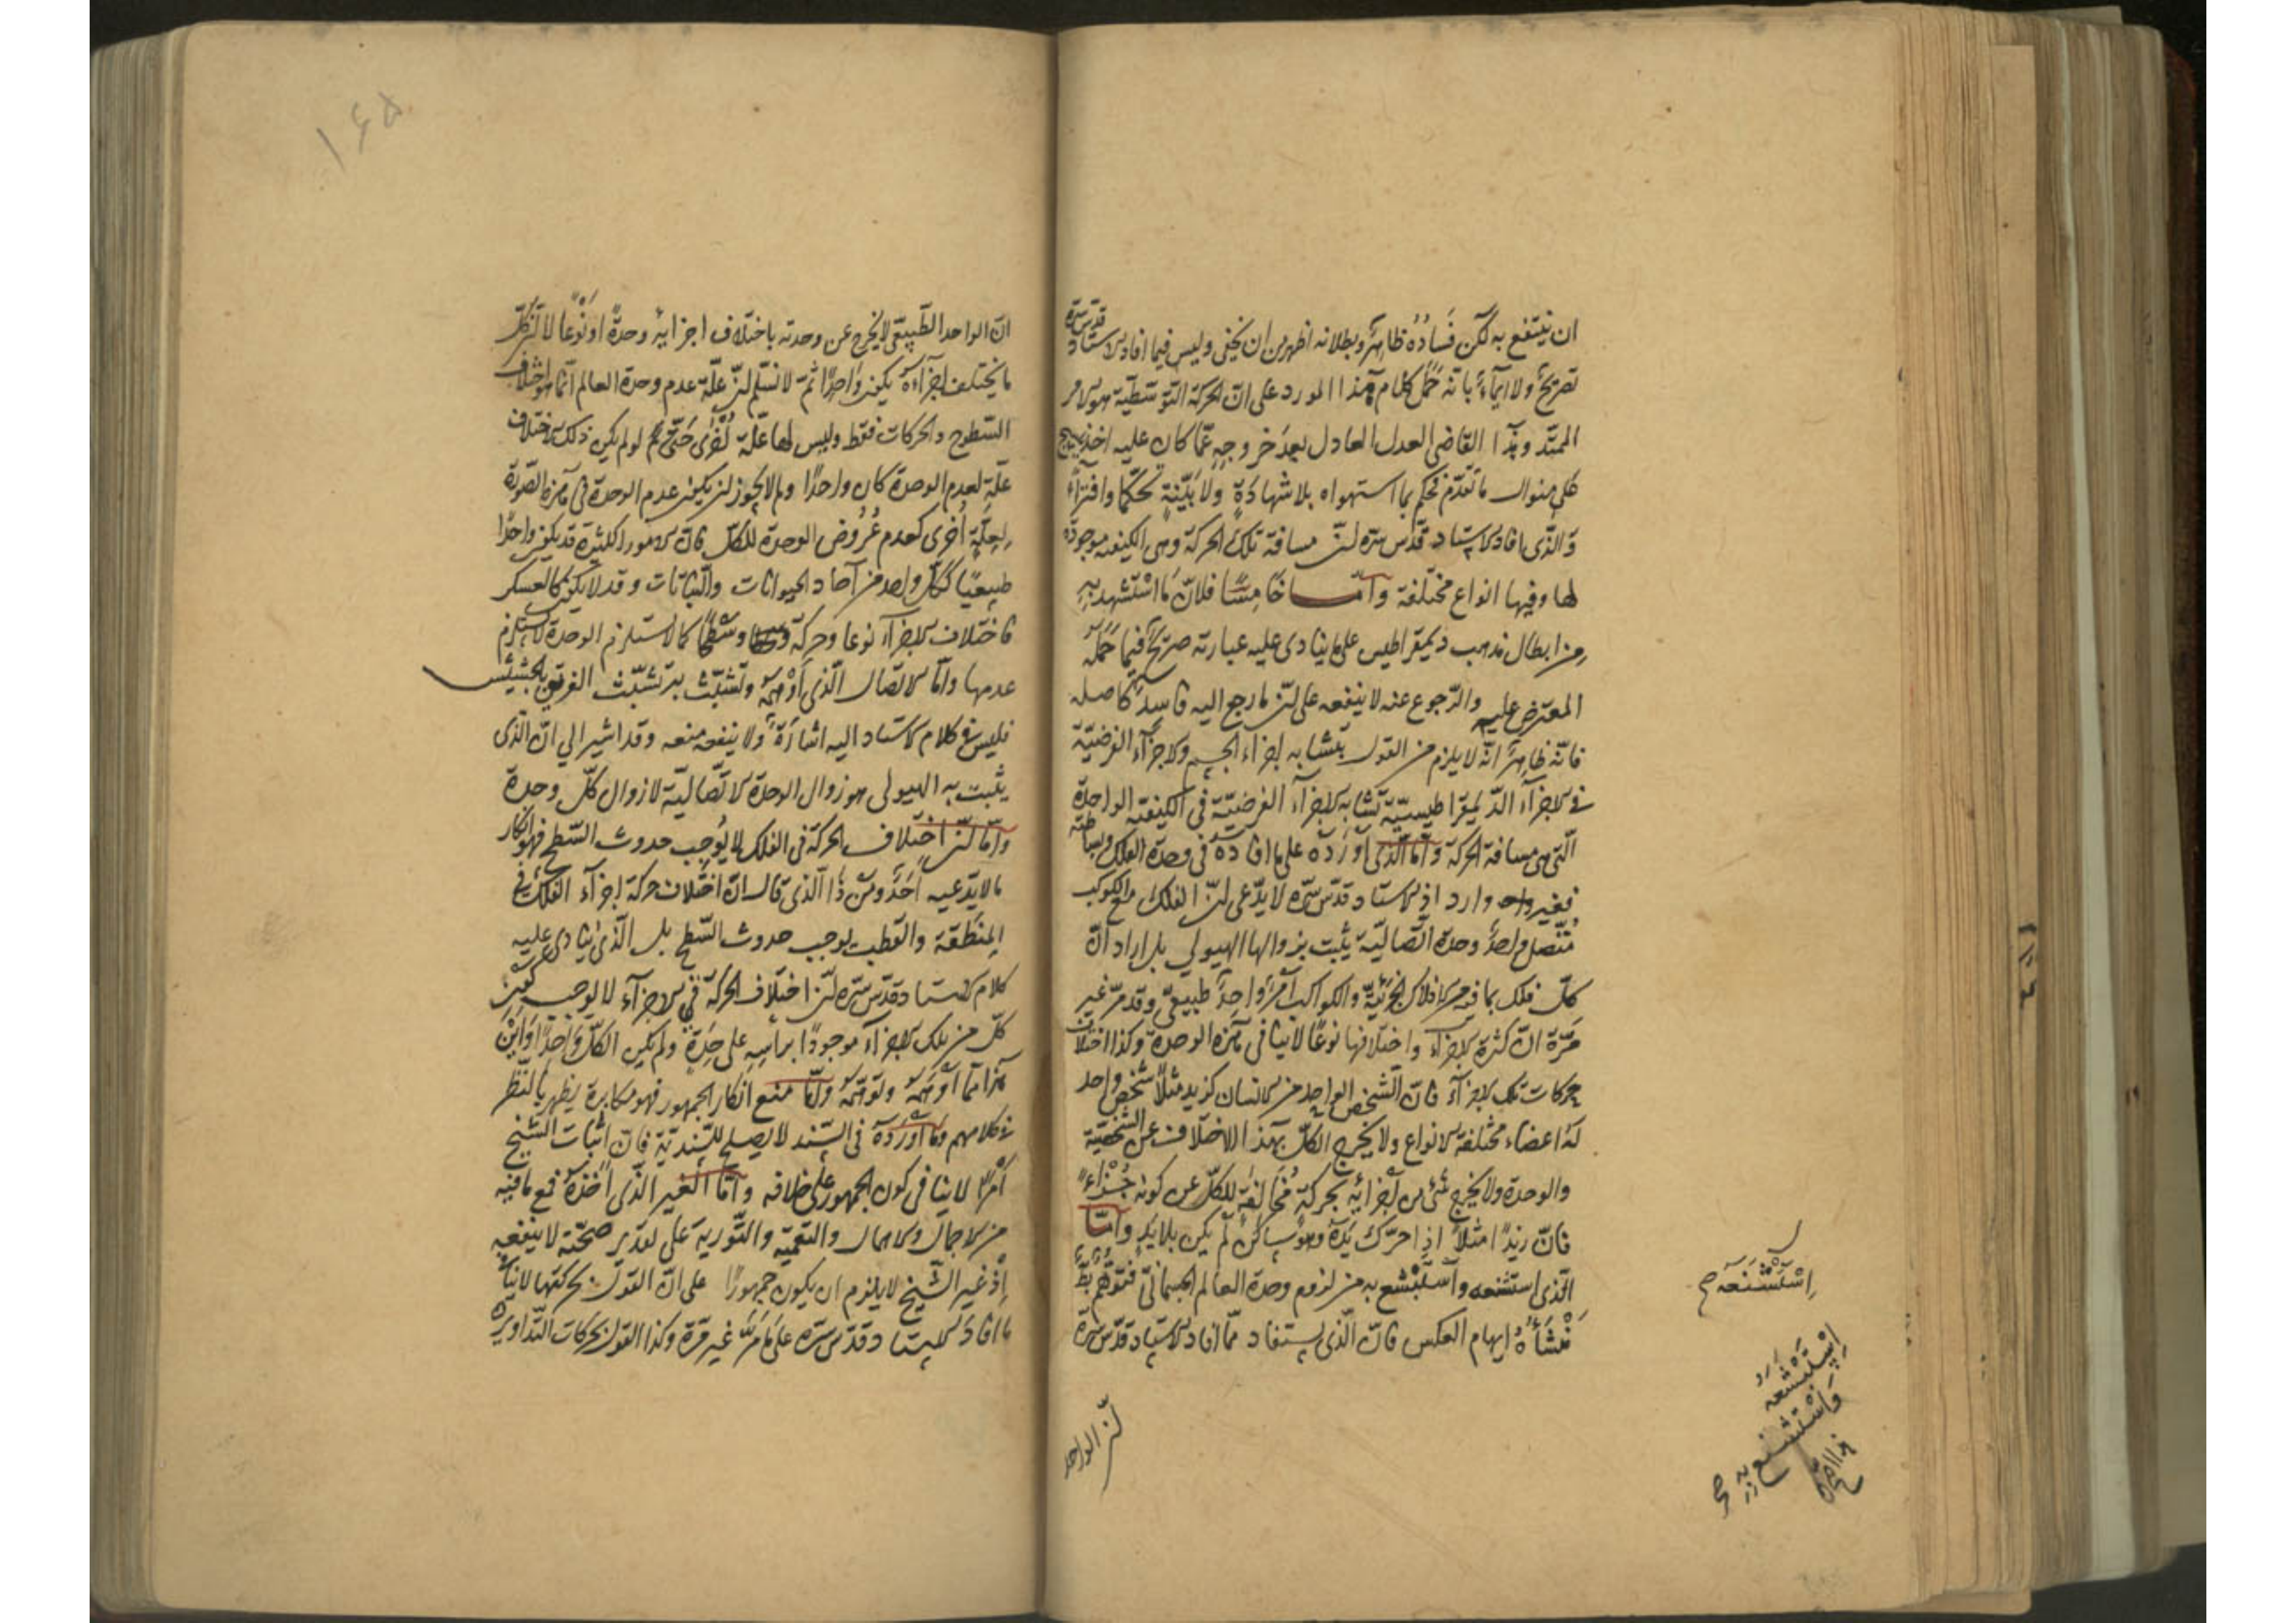 ان ينتفع به لكن فساده ظاهر وبطلانه اظهر من ان يخفى وليس فيما افاد الاستاد قدس سره
تصريح ولا ايماء بانه حمل كلام هذا المورد على ان الحركة التوسطية هو الامر
الممتد وهذا القاضى العدل العادل بعد خروجه عما كان عليه اخذ
على منوال ما تقدم يحكم بما استهواه بلا شهادة ولا بينة تحكما وافتراء
والذى افاد الاستاد قدس سره ان مسافة تلك الحركة وهى الكيفية موجودة
لها وفيها انواع مختلفة واما خامسا فلان ما استشهد به
من ابطال مذهب ديمقراطيس على ما ينادى عليه عبارته صريح فيما حمله
المعترض عليه والرجوع عنه لا ينفعه على ان ما رجع اليه فاسد كاصله
فانه ظاهر انه لا يلزم من القول بتشابه اجزاء الجسم والاجزاء الفرضية
فى الاجزاء الديمقراطيسية تشابه الاجزاء الفرضية فى الكيفية الواحدة
التى هى مسافة الحركة واما الذى اورده على ما افاده فى وحدة الفلك وبساطته
فغير وارد اذ الاستاد قدس سره لا يدعى ان الفلك مع الكوكب
متصل واحد وحدة اتصالية يثبت بزوالها الهيولى بل اراد ان
كل فلك بما فيه من الافلاك الجزئية والكواكب امر واحد طبيعى وقد مر غير
مرة ان كثرة الاجزاء واختلافها نوعا لا ينافى هذه الوحدة وكذا اختلاف
حركات تلك الاجزاء فان الشخص الواحد من الانسان كزيد مثلا شخص واحد
له اعضاء مختلفة الانواع ولا يخرج الكل بهذا الاختلاف عن الشخصية
والوحدة ولا يخرج شئ من اجزائه بحركة مخالفة للكل عن كونه جزءا
فان زيدا مثلا اذا حرك يده وهو ساكن لم يكن بلا يد واما
الذى استشنعه واستبشع به من لزوم وحدة العالم الجسمانى فتوهم
منشأه ايهام العكس فان الذى يستفاد مما افاد الاستاد قدس سره
ان الواحد
استشنعه ح
استبشعه
واستشنع به
١٦٥
ان الواحد الطبيعى لا يخرج عن وحدته باختلاف اجزايه وحدة او نوعا لا ان كل
ما يختلف اجزاءه يكون واحدا ثم لا نسلم ان علة عدم وحدة العالم انما هو اختلاف
السطوح والحركات فقط وليس لها علة اخرى حتى لو لم يكن ذلك الاختلاف
علة لعدم الوحدة كان واحدا ولم لا يجوز ان يكون عدم الوحدة فى هذه الصورة
لعلة اخرى كعدم عروض الوحدة للكل فان الامور الكثيرة قد يكون واحدا
طبيعيا ككل واحد من آحاد الحيوانات والنباتات وقد لا يكون كالعسكر
فاختلاف الاجزاء نوعا وحركة وسطحا كما لا يستلزم الوحدة لا يستلزم
عدمها واما الاتصال الذى اوهمه وتشبث به تشبث الغريق بالحشيش
فليس فى كلام الاستاد اليه اشارة ولا ينفعه منعه وقد اشير الي ان الذى
يثبت به الهيولى هو زوال الوحدة الاتصالية لا زوال كل وحدة
واما ان اختلاف الحركة فى الفلك لا يوجب حدوث السطح فهو انكار
ما لا يدعيه احد ومن ذا الذى قال ان اختلاف حركة اجزاء الفلك فى
المنطقة والقطب يوجب حدوث السطح بل الذى ينادى عليه
كلام الاستاد قدس سره ان اختلاف الحركة فى الاجزاء لا يوجب
كل من تلك الاجزاء موجودا براسه على حدة ولم يكن الكل واحدا واين
هذا مما اوهمه وتوهمه واما منع انكار الجمهور فهو مكابرة يظهر بالنظر
فى كلامهم وما اورده فى السند لا يصلح للسندية فان اثبات الشيخ
امرا لا ينافى كون الجمهور على خلافه واما الغير الذى اخذه فمع ما فيه
من الاجمال والاهمال والتعمية والتورية على تقدير صحته لا ينفعه
اذ غير الشيخ لا يلزم ان يكون جمهورا على ان القول بحركتها لا ينافى
ما افاد الاستاد قدس سره على ما مر غير مرة وكذا القول بحركات التداوير